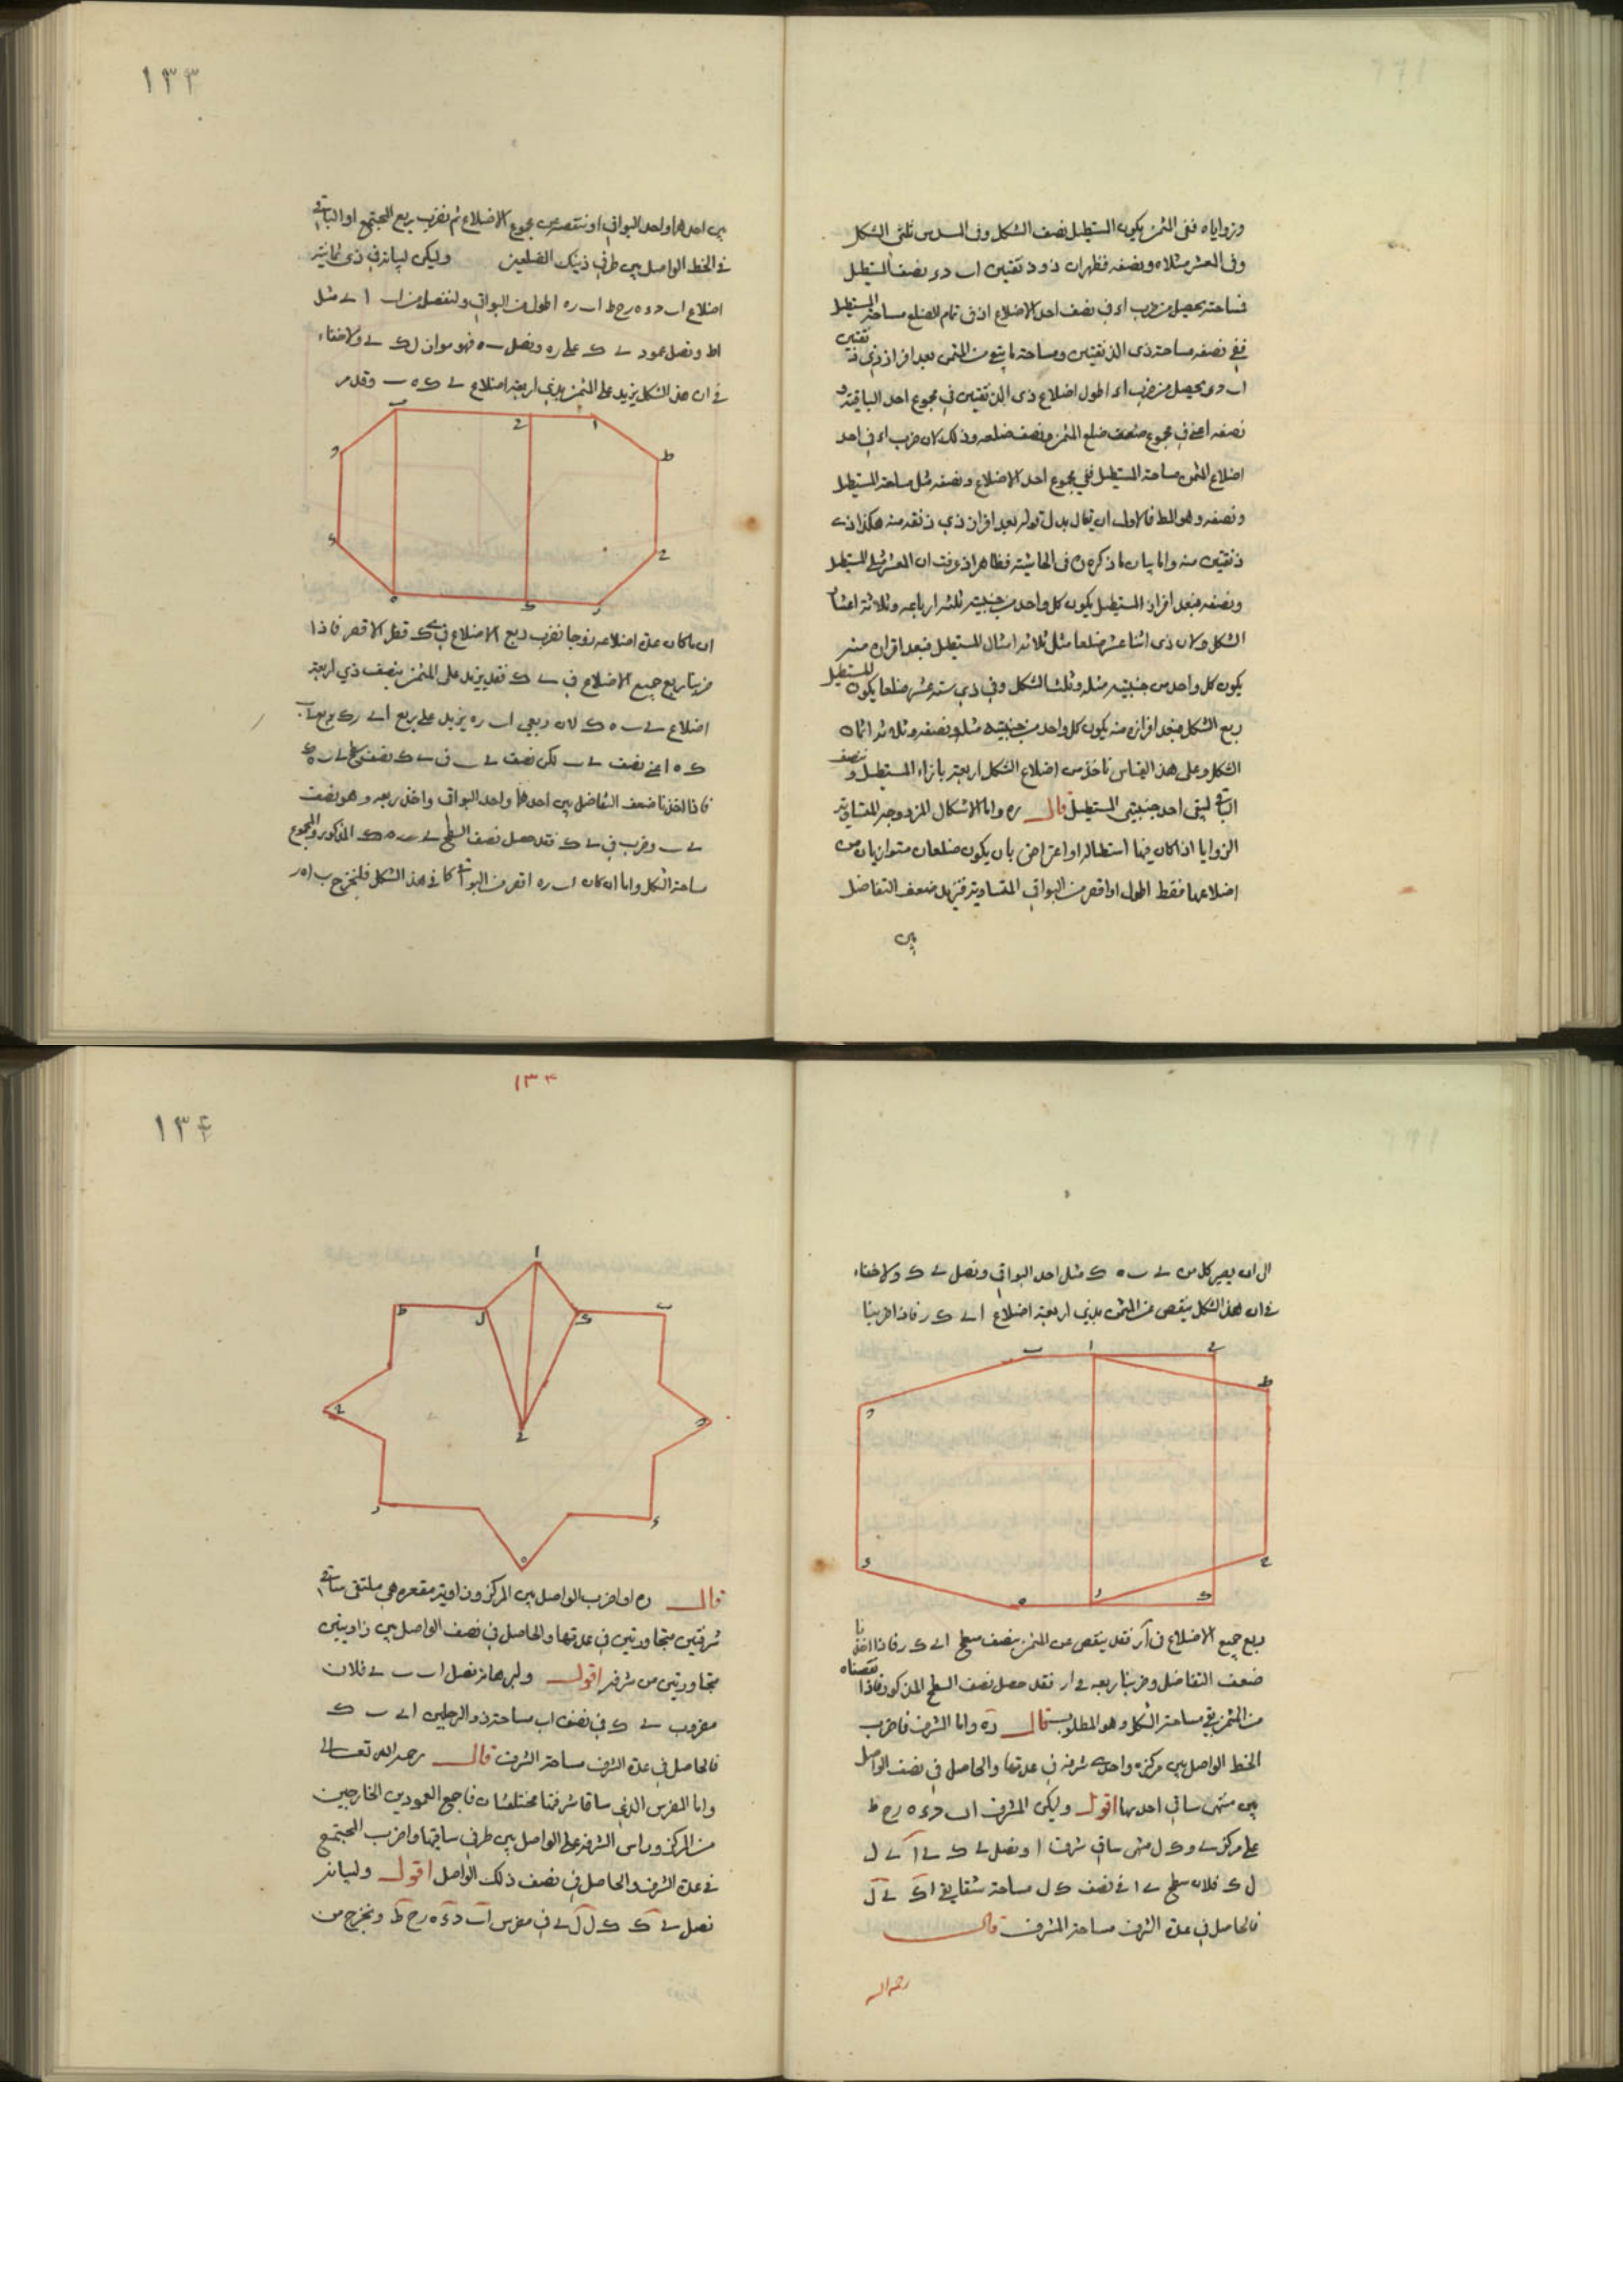 ١٣٣
وزواياه ففى المثمن يكون المستطيل نصف الشكل وفى المسدس ثلثى الشكل
وفى المعشر مثلاه ونصفه فظهر ان ذو ذنقتين اب د ء نصف المستطيل
فمساحته يحصل من ضرب اء فى نصف احد الاضلاع اذ فى تمام الضلع مساحة المستطيل
ففى نصفه مساحة ذى الذنقتين ومساحة ما بقى من المثمن بعد افراز ذى ذنقتين
اب د ء يحصل من ضرب اء اطول اضلاع ذى الذنقتين فى مجموع احد الباقية و
نصفه اعنى فى مجموع ضلع المثمن ونصف ضلعه وذلك لان ضرب اء فى احد
اضلاع المثمن مساحة المستطيل ففى مجموع احد الاضلاع ونصفه مثل مساحة المستطيل
ونصفه وهو المط فالاولى ان يقال بدل قوله بعد افراز ذى ذنقه منه هكذا ذى
ذنقتين منه واما بيان ما ذكره فى الحاشية فظاهر اذ عرفت ان المعشر مثلى المستطيل
ونصفه فبعد افراز المستطيل يكون كل واحد من جنبيته ثلثه ارباعه وثلاثة اعشار
الشكل ولان ذى اثنا عشر ضلعا مثل ثلاثة امثال المستطيل فبعد افرازه منه
يكون كل واحد من جنبيته مثله وثلث الشكل وفى ذى ستة عشر ضلعا يكون المستطيل
ربع الشكل فبعد افرازه منه يكون كل واحد من جنبيتيه مثله ونصفه وثلاثة اثمان
الشكل وعلى هذا القياس تاخذ من اضلاع الشكل اربعة بازاء المستطيل و نصف
الباقى لبقى احد جنبيتى المستطيل قال ره واما الاشكال المزدوجة المتساوية
الزوايا اذا كان فيها استطالة او اعتراض بان يكون ضلعان متوازيان من
اضلاعها فقط اطول او اقصر من البواقى المتساوية فنزيد ضعف التفاضل
بين
بين احدهما واحد البواقى او ننتقصه من مجموع الاضلاع ثم نضرب ربع المجتمع او الباقى
فى الخط الواصل بين طرفى ذينك الضلعين وليكن لبيانه فى ذى ثمانية
اضلاع اب د ء ه ر ح ط اب ره اطول من البواقى ولنفصل من اب ا ے مثل
اط ونصل عمود ے ك على ره ونصل ب ه فهو مواز ل ے ك ولا خفاء
فى ان هذا الشكل يزيد على المثمن بذى اربعة اضلاع ے ك ه ب وقد مر
ان ما كان عدة اضلاعه زوجا نضرب ربع الاضلاع فى ے ك قطر الاقصر فاذا
ضربنا ربع جميع الاضلاع فى ے ك فقد يزيد على المثمن بنصف ذى اربعة
اضلاع ے ب ه ك لان ربعى اب ره يزيد على ربع ا ے رك بربع ے ب
ك ه اعنى نصف ے ب لكن نصف ے ب فى ے ك نصف سطح ے ب ه ك
فاذا اخذنا ضعف التفاضل بين احدهما واحد البواقى واخذ ربعه وهو نصف
ے ب وضرب فى ے ك فقد حصل نصف السطح ے ب ه ك المذكور والمجموع
مساحة الشكل واما ان كان اب ره اقصر من البواقى كما فى هذا الشكل فلنخرج ب ا ه ر
١٣٣
١٣٤
الى ان يصير كل من ے ب ه ك مثل احد البواقى ونصل ے ك ولا خفاء
فى ان هذا الشكل ينقص عن المثمن بذى اربعة اضلاع ا ے ك ر فاذا ضربنا
ربع جميع الاضلاع فى ار فقد ينقص عن المثمن بنصف سطح ا ے ك ر فاذا اخذنا
ضعف التفاضل وضربنا ربعه فى ار فقد حصل نصف السطح المذكور فاذا نقصناه
من المثمن بقى مساحة الشكل وهو المطلوب قال ره واما الشرف فاضرب
الخط الواصل بين مركزه واحدى شرفه فى عدتها والحاصل فى نصف الواصل
بين منتهى ساقى احديها اقول وليكن المشرف اب د ء ه ر ح ط
على مركز ے و ك ل منتهى ساقى شرفة ا ونصل ے ك ے ا ك ے ل
ل ك فلان سطح ے ا فى نصف ك ل مساحة شقايق ا ك ے ل
فالحاصل فى عدة الشرف مساحة المشرف قال
رحمه الله
قال ره او اضرب الواصل بين المركز وزاوية مقعره هى ملتقى ساقى
شرفتين متجاورتين فى عدتها والحاصل فى نصف الواصل بين زاويتين
متجاورتين من شرفه اقول ولبرهانه نصل اب ب ے فلان
مضروب ے ك فى نصف اب مساحة ذو الرجلين ا ے ب ك
فالحاصل فى عدة الشرف مساحة الشرف قال رحمه الله تعالى
واما المضرس الذى ساقا شرفتنا مختلفتان فاجمع العمودين الخارجين
من المركز وراس الشرفة على الواصل بين طرفى ساقيها واضرب المجتمع
فى عدة الشرف والحاصل فى نصف ذلك الواصل اقول ولبيانه
نصل ے ك ك ل ل ے فى مضرس اب د ء ه ر ح ط ونخرج من